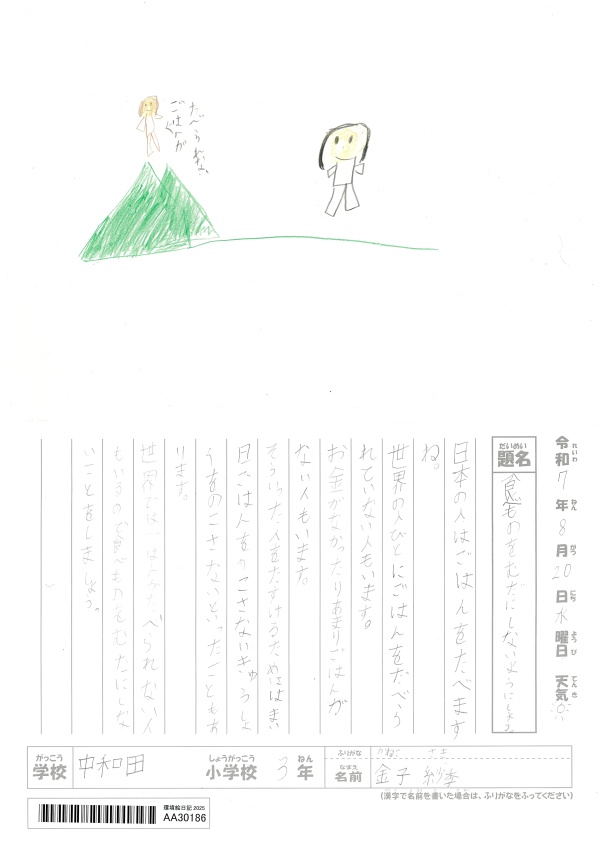 たべられない
ごはんが
令和7年8月20日水曜日 天気
れいわ ねん がつ にち ようび てんき
だいめい
題名
食べものをむだにしないようにしよう。
日本の人はごはんをたべます
ね。
世界の人びとにごはんをたべら
れていない人もいます。
お金がなかったりあまりごはんが
ない人もいます。
そういった人をたすけるためにはまい
日ごは人をのこさないきゅうしょ
くをのこさないといったこともあ
ります。
世界ではごはんがたべられない人
もいるので食べものをむだにしな
いことをしましょう。
がっこう
学校
中和田
しょうがっこう
小学校
3
ねん
年
ふりがな
かねこ
なまえ
名前
金子 紗季
(漢字で名前を書いた場合は、ふりがなをふってください)
環境絵日記2025
AA30186